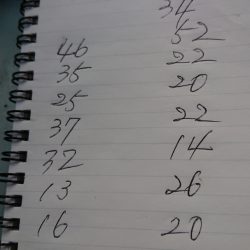 34
52
46 22
35 20
25 22
37 14
32 26
13 20
16